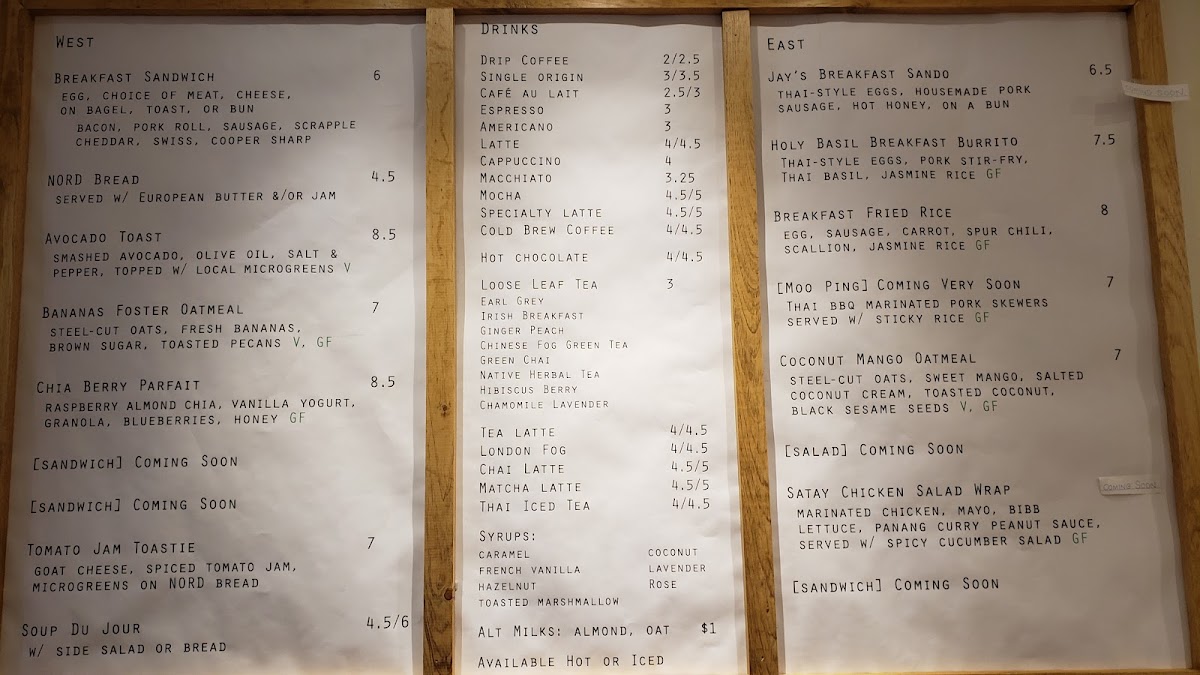 WEST
BREAKFAST SANDWICH 6
EGG, CHOICE OF MEAT, CHEESE,
ON BAGEL, TOAST, OR BUN
BACON, PORK ROLL, SAUSAGE, SCRAPPLE
CHEDDAR, SWISS, COOPER SHARP
NORD BREAD 4.5
SERVED W/ EUROPEAN BUTTER &/OR JAM
AVOCADO TOAST 8.5
SMASHED AVOCADO, OLIVE OIL, SALT &
PEPPER, TOPPED W/ LOCAL MICROGREENS V
BANANAS FOSTER OATMEAL 7
STEEL-CUT OATS, FRESH BANANAS,
BROWN SUGAR, TOASTED PECANS V, GF
CHIA BERRY PARFAIT 8.5
RASPBERRY ALMOND CHIA, VANILLA YOGURT,
GRANOLA, BLUEBERRIES, HONEY GF
[SANDWICH] COMING SOON
[SANDWICH] COMING SOON
TOMATO JAM TOASTIE 7
GOAT CHEESE, SPICED TOMATO JAM,
MICROGREENS ON NORD BREAD
SOUP DU JOUR 4.5/6
W/ SIDE SALAD OR BREAD
DRINKS
DRIP COFFEE 2/2.5
SINGLE ORIGIN 3/3.5
CAFÉ AU LAIT 2.5/3
ESPRESSO 3
AMERICANO 3
LATTE 4/4.5
CAPPUCCINO 4
MACCHIATO 3.25
MOCHA 4.5/5
SPECIALTY LATTE 4.5/5
COLD BREW COFFEE 4/4.5
HOT CHOCOLATE 4/4.5
LOOSE LEAF TEA 3
EARL GREY
IRISH BREAKFAST
GINGER PEACH
CHINESE FOG GREEN TEA
GREEN CHAI
NATIVE HERBAL TEA
HIBISCUS BERRY
CHAMOMILE LAVENDER
TEA LATTE 4/4.5
LONDON FOG 4/4.5
CHAI LATTE 4.5/5
MATCHA LATTE 4.5/5
THAI ICED TEA 4/4.5
SYRUPS:
CARAMEL COCONUT
FRENCH VANILLA LAVENDER
HAZELNUT ROSE
TOASTED MARSHMALLOW
ALT MILKS: ALMOND, OAT $1
AVAILABLE HOT OR ICED
EAST
JAY'S BREAKFAST SANDO 6.5
COMING SOON
THAI-STYLE EGGS, HOUSEMADE PORK
SAUSAGE, HOT HONEY, ON A BUN
HOLY BASIL BREAKFAST BURRITO 7.5
THAI-STYLE EGGS, PORK STIR-FRY,
THAI BASIL, JASMINE RICE GF
BREAKFAST FRIED RICE 8
EGG, SAUSAGE, CARROT, SPUR CHILI,
SCALLION, JASMINE RICE GF
[MOO PING] COMING VERY SOON 7
THAI BBQ MARINATED PORK SKEWERS
SERVED W/ STICKY RICE GF
COCONUT MANGO OATMEAL 7
STEEL-CUT OATS, SWEET MANGO, SALTED
COCONUT CREAM, TOASTED COCONUT,
BLACK SESAME SEEDS V, GF
[SALAD] COMING SOON
SATAY CHICKEN SALAD WRAP COMING SOON
MARINATED CHICKEN, MAYO, BIBB
LETTUCE, PANANG CURRY PEANUT SAUCE,
SERVED W/ SPICY CUCUMBER SALAD GF
[SANDWICH] COMING SOON